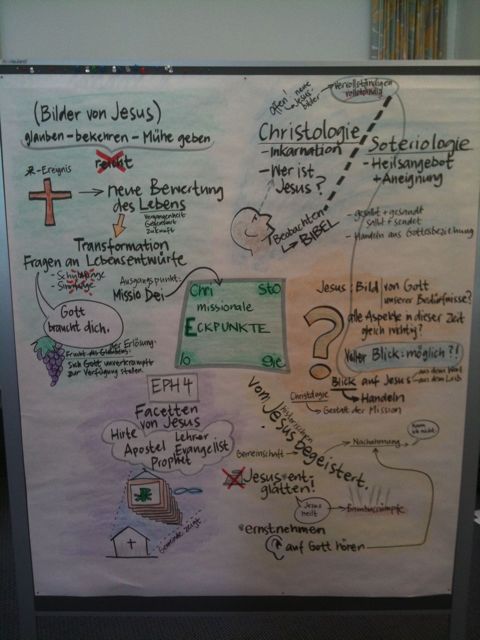 (Bilder von Jesus)
glauben - bekehren - Mühe geben
reicht
-Ereignis
→ neue Bewertung
des Lebens
Vergangenheit
Gegenwart
Zukunft
Transformation
Fragen an Lebensentwürfe
- Schuldfrage
- Sinnfrage
Ausgangspunkt:
Missio Dei
Gott
braucht dich.
der Erlösung.
Frucht des Glaubens:
Sich Gott unverkrampft
zur Verfügung stellen.
offen!
neue
Jesus-
bilder
vervollständigen
vollständig
Christologie
- Inkarnation
- Wer ist
Jesus?
Beobachten
↳ BIBEL
Soteriologie
- Heilsangebot
+ Aneignung
- gesalbt + gesandt
salbt + sendet
- Handeln aus Gottesbeziehung
Chri sto
missionale
ECKPUNKTE
lo gie
Jesus: Bild von Gott
unserer Bedürfnisse?
alle Aspekte in dieser Zeit
gleich wichtig?
?
Voller Blick: möglich?!
Blick auf Jesus
aus dem Wort
aus dem Leib
↳ Handeln
Christologie
↳ Gestalt der Mission
EPH 4
Facetten
von Jesus
Hirte
Lehrer
Apostel
Evangelist
Prophet
Gemeinde zeigt
Vom historischen
Jesus begeistert.
Gemeinschaft →
Nachahmung
Kann
ich nicht
Jesus ent-
glätten!
Jesus
heilt
*ernstnehmen
auf Gott hören